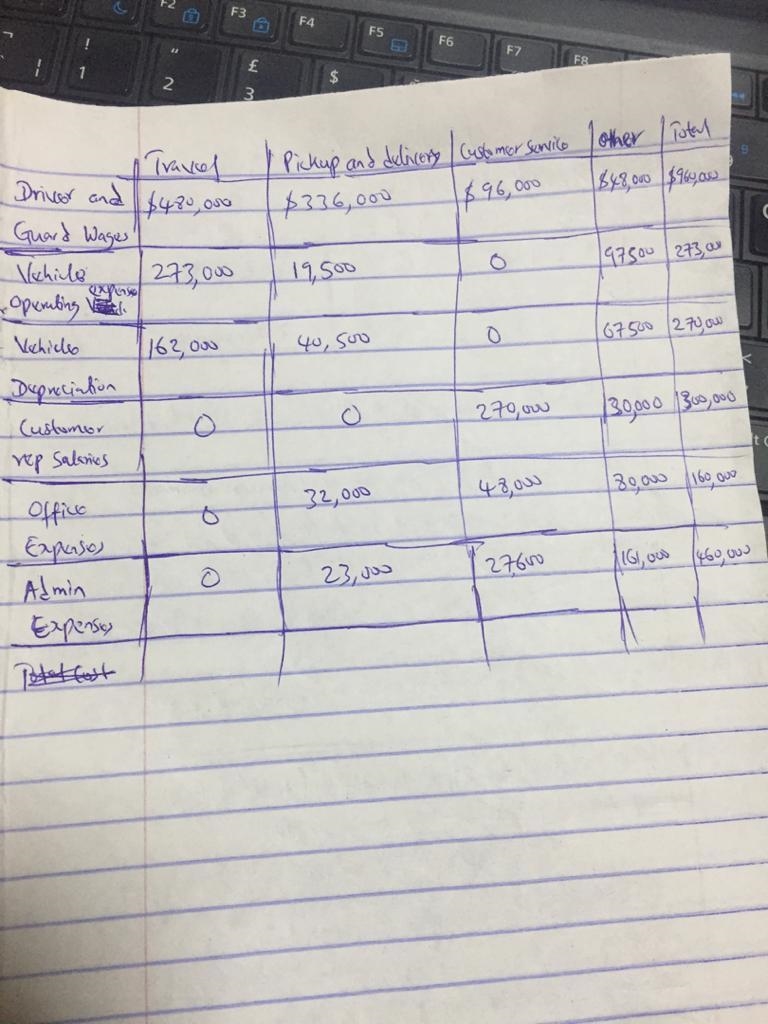 F2 F3 F4 F5 F6 F7 F8
! " £ $
1 2 3
9
Travel Pickup and delivery Customer service Other Total
Driver and $480,000 $336,000 $96,000 $48,000 $960,000
Guard Wages
Vehicle 273,000 19,500 0 97500 273,000
expense
Operating
Vehicle 162,000 40,500 0 67500 270,000
Depreciation
Customer 0 0 270,000 30,000 300,000
rep Salaries
Office 0 32,000 48,000 80,000 160,000
Expenses
Admin 0 23,000 27,600 161,000 460,000
Expenses
Total Cost